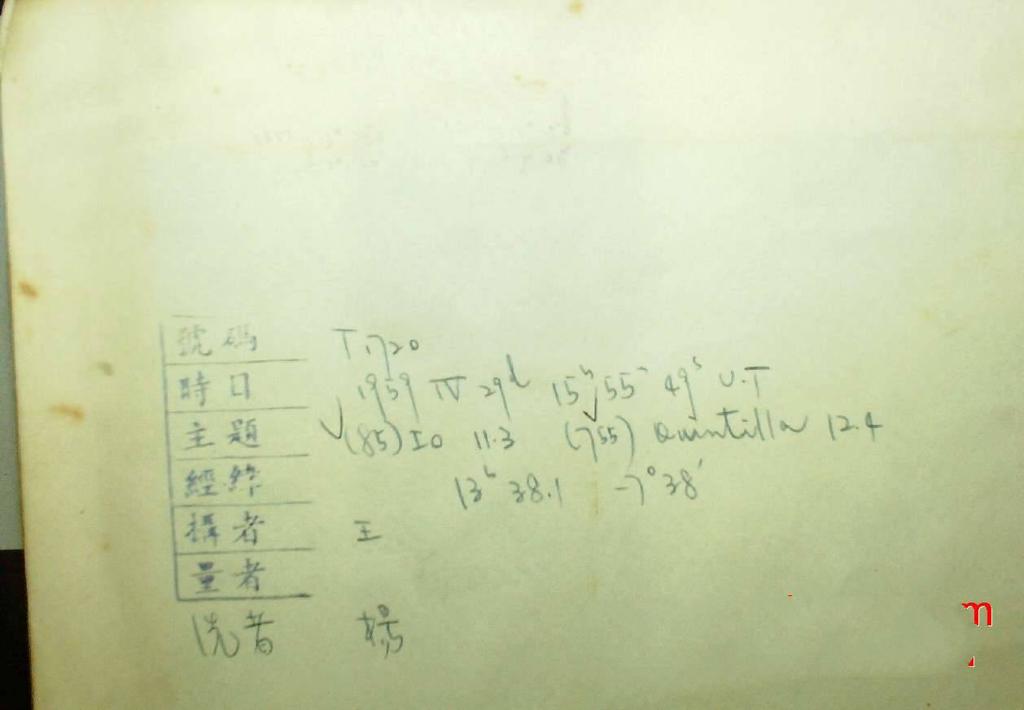 號碼 T1720
時日 1959 IV 29d 15h 55m 49s U.T
主題 (85) Io 11.3 (755) Quintilla 12.4
經緯 13h 38.1 -7°38'
攝者 王
量者
洗者 楊
m